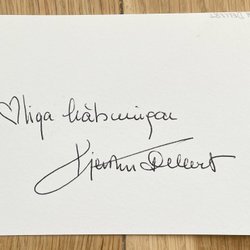 ♡liga hälsningar
Kjerstin Dellert